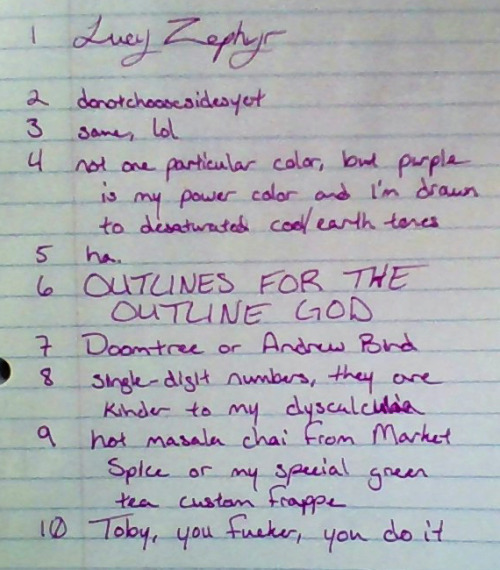 1 Lucy Zephyr
2 donotchoosesidesyet
3 same, lol
4 not one particular color, but purple
is my power color and I'm drawn
to desaturated cool/earth tones
5 ha.
6 OUTLINES FOR THE
OUTLINE GOD
7 Doomtree or Andrew Bird
8 single-digit numbers, they are
kinder to my dyscalculia
9 hot masala chai from Market
Spice or my special green
tea custom frappe
10 Toby, you fucker, you do it